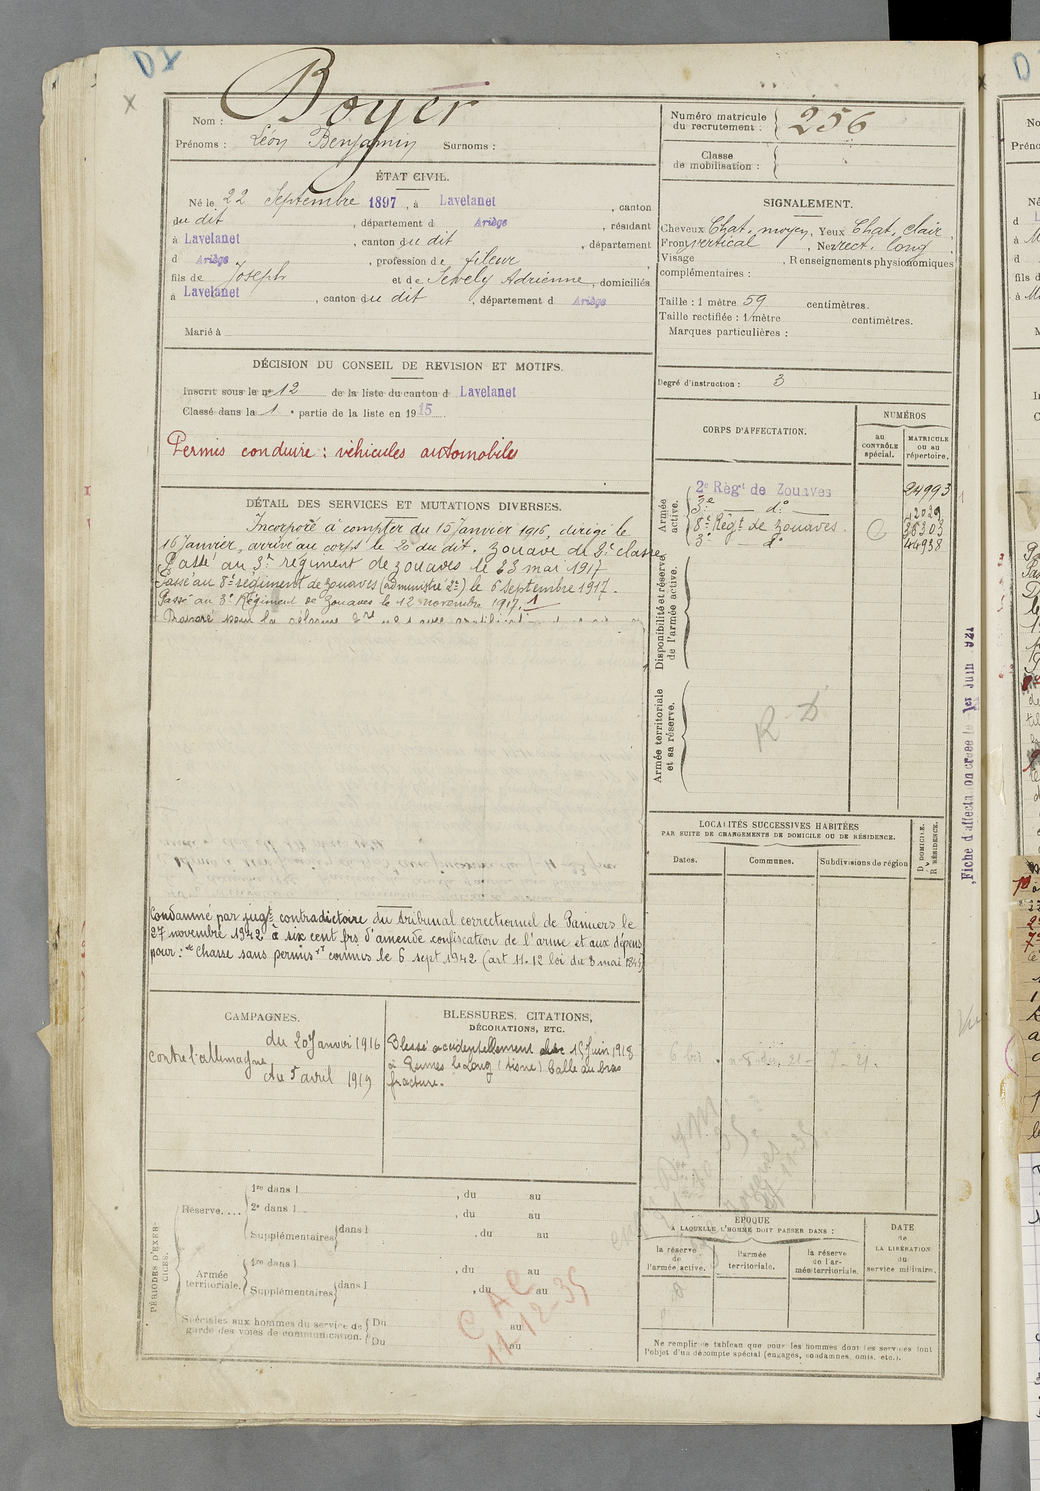 DX
Nom : Boyer
Prénoms : Léon Benjamin Surnoms :
Numéro matricule du recrutement : 256
Classe de mobilisation :
ÉTAT CIVIL.
Né le 22 Septembre 1897, à Lavelanet, canton
du dit, département d Ariège, résidant
à Lavelanet, canton du dit, département
d Ariège, profession de fileur,
fils de Joseph et de Sevely Adrienne, domiciliés
à Lavelanet, canton du dit, département d Ariège
Marié à
SIGNALEMENT.
Cheveux Chat. moyen, Yeux Chat. clair,
Front vertical, Nez rect. long
Visage , Renseignements physionomiques
complémentaires :
Taille : 1 mètre 59 centimètres.
Taille rectifiée : 1 mètre centimètres.
Marques particulières :
Degré d'instruction : 3
DÉCISION DU CONSEIL DE REVISION ET MOTIFS.
Inscrit sous le n° 12 de la liste du canton d Lavelanet
Classé dans la 1e partie de la liste en 1915
Permis conduire : véhicules automobiles
DÉTAIL DES SERVICES ET MUTATIONS DIVERSES.
Incorporé à compter du 15 Janvier 1916, dirigé le
16 Janvier, arrivé au corps le 20 du dit. Zouave de 2e classe
Passé au 3e régiment de zouaves le 23 mai 1917
Passé au 8e régiment de zouaves (administré 2e) le 6 septembre 1917.
Passé au 3e Régiment de Zouaves le 12 novembre 1917. 1
Condamné par jugt contradictoire du tribunal correctionnel de Pamiers le
27 novembre 1942 à six cent frs d'amende confiscation de l'arme et aux dépens
pour : "Chasse sans permis" commis le 6 sept 1942 (art 11. 12 loi du 3 mai 1844)
CORPS D'AFFECTATION.
NUMÉROS
au CONTRÔLE spécial.
MATRICULE ou au répertoire.
Armée active.
2e Régt de Zouaves 24993
3e do 2029
8e Régt de zouaves. 36303
3e do 44938
Disponibilité et réserve de l'armée active.
Armée territoriale et sa réserve.
R. D
Fiche d'affectation créée le 1er Juin 1921
LOCALITÉS SUCCESSIVES HABITÉES
PAR SUITE DE CHANGEMENTS DE DOMICILE OU DE RÉSIDENCE.
Dates. Communes. Subdivisions de région
D DOMICILE.
R RÉSIDENCE.
CAMPAGNES.
Contre l'allemagne
du 20 Janvier 1916
au 5 avril 1919
BLESSURES, CITATIONS,
DÉCORATIONS, ETC.
Blessé accidentellement le 15 Juin 1918
à Rennes le Long (Aisne) balle au bras
fracture.
PÉRIODES D'EXERCICES.
Réserve....
1re dans l , du au
2e dans l , du au
Supplémentaires dans l , du au
Armée territoriale.
1re dans l , du au
Supplémentaires dans l , du au
Spéciales aux hommes du service de garde des voies de communication.
Du au
Du au
C A C
11-12-35
ÉPOQUE
A LAQUELLE L'HOMME DOIT PASSER DANS :
la réserve de l'armée active.
l'armée territoriale.
la réserve de l'armée territoriale.
DATE
de
LA LIBÉRATION
du
service militaire.
Ne remplir ce tableau que pour les hommes dont les services font
l'objet d'un décompte spécial (engagés, condamnés, omis, etc.).